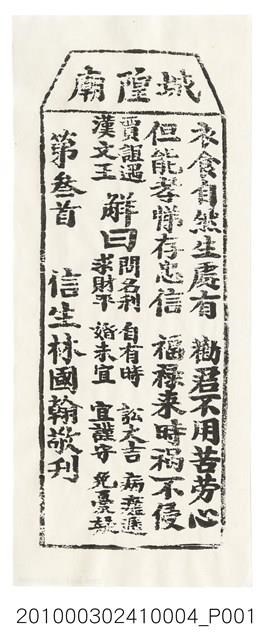 城隍廟
衣食自然生處有 勸君不用苦勞心
但能孝悌存忠信 福祿来時禍不侵
賈誼遇
漢文王
解曰
問名利 自有時 訟大吉 病遲
求財平 婚未宜 宜謹守 免憂疑
第叁首 信生林國翰敬刊
201000302410004_P001